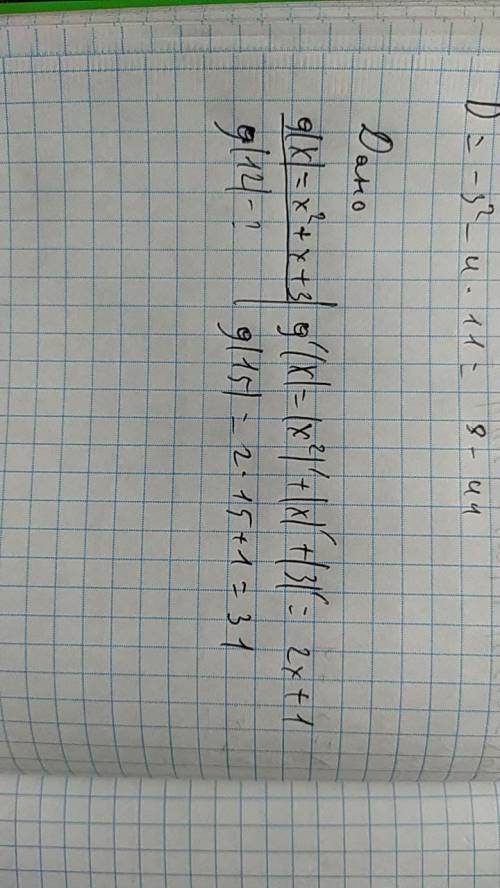 D = -3² - 4 · 11 = 9 - 44
Дано
g(x) = x² + x + 3 g'(x) = (x²)' + (x)' + (3)' = 2x + 1
g(12) - ? g(15) = 2 · 15 + 1 = 31